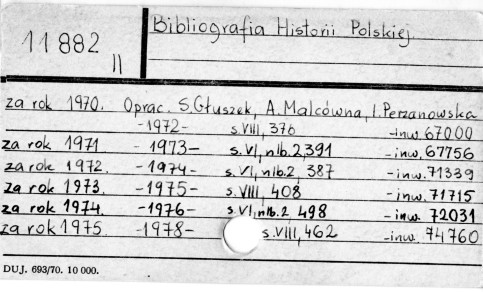 11 882
II
Bibliografia Historii Polskiej
za rok 1970. Oprac. S. Głuszek, A. Malcówna, I. Perzanowska
-1972- s. VIII, 376 -inw. 67000
za rok 1971 -1973- s. VI, nlb. 2, 391 -inw. 67756
za rok 1972. -1974- s. VI, nlb. 2, 387 -inw. 71339
za rok 1973. -1975- s. VIII, 408 -inw. 71715
za rok 1974. -1976- s. VI, nlb. 2 498 -inw. 72031
za rok 1975. -1978- s. VIII, 462 -inw. 74760
DUJ. 693/70. 10 000.